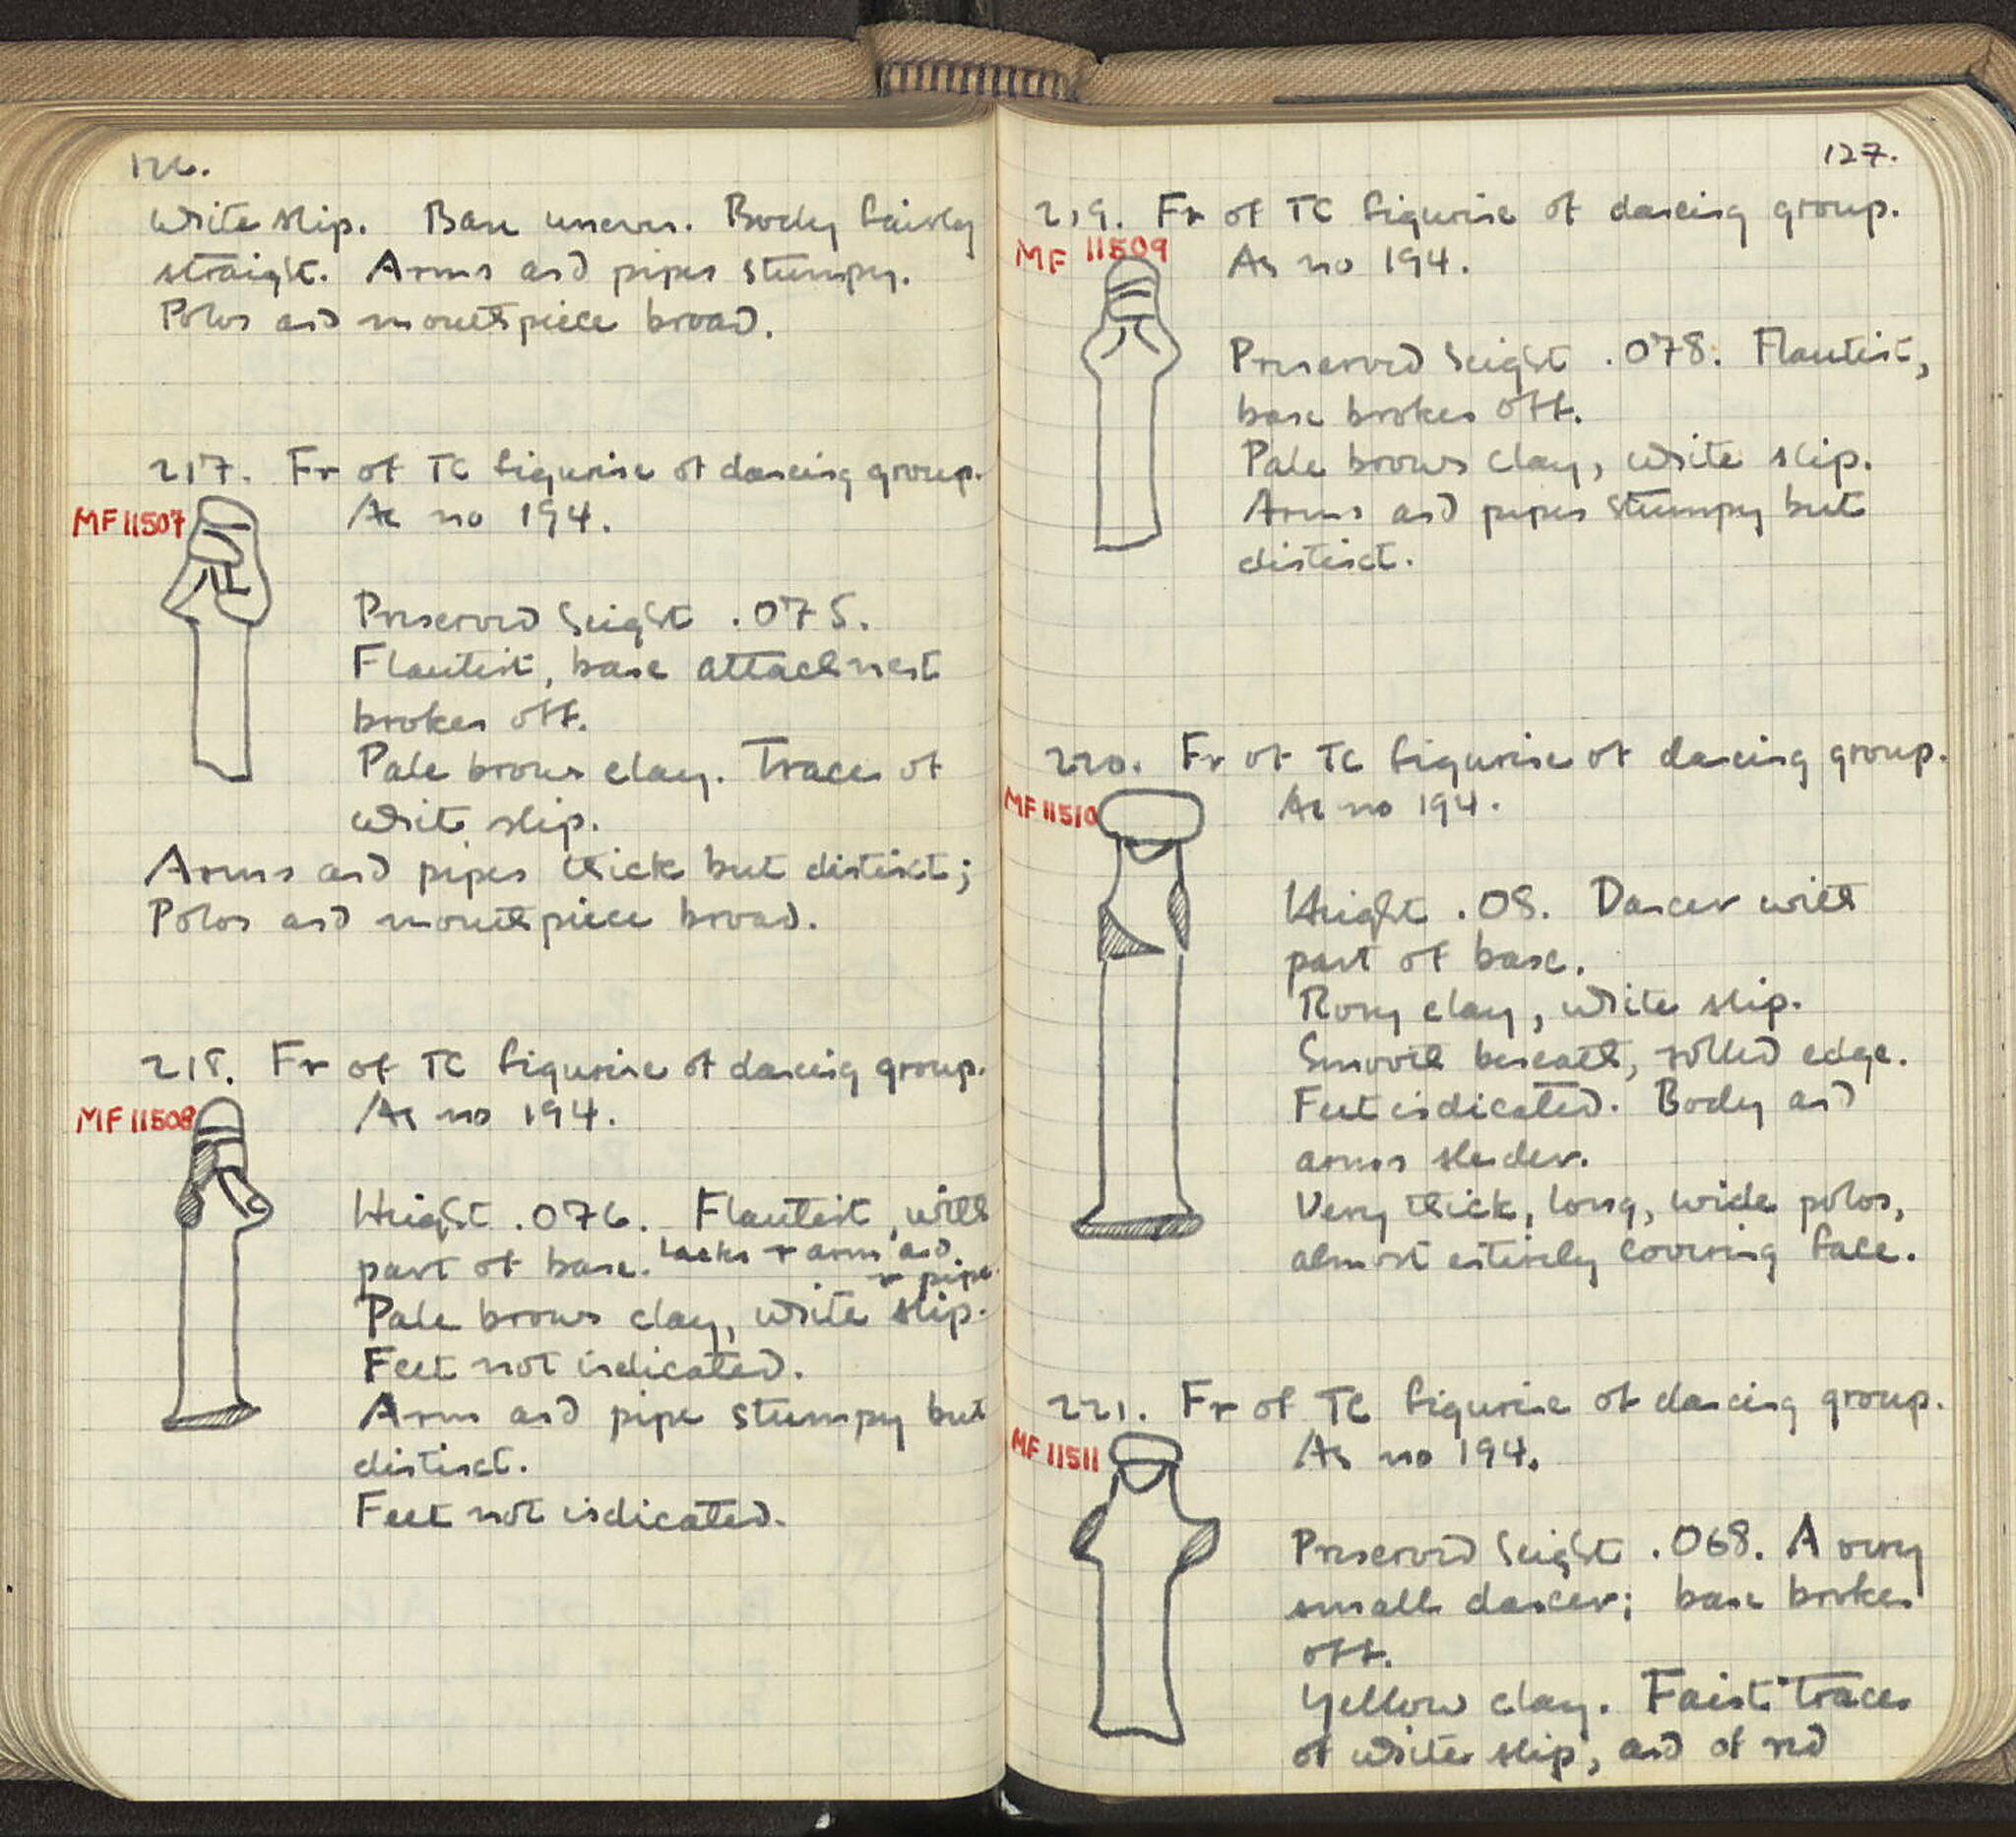 126.
White slip. Base uneven. Body fairly
straight. Arms and pipes stumpy.
Polos and mouthpiece broad.
217. Fr of TC figurine of dancing group.
MF 11507
As no 194.
Preserved height .075.
Flautist, base attachment
broken off.
Pale brown clay. Traces of
white slip.
Arms and pipes thick but distinct;
Polos and mouthpiece broad.
218. Fr of TC figurine of dancing group.
MF 11508
As no 194.
Height .076. Flautist, with
part of base. Lacks r arm and
r pipe.
Pale brown clay, white slip.
Feet not indicated.
Arm and pipe stumpy but
distinct.
Feet not indicated.
127.
219. Fr of TC figurine of dancing group.
MF 11509
As no 194.
Preserved height .078. Flautist,
base broken off.
Pale brown clay, white slip.
Arms and pipes stumpy but
distinct.
220. Fr of TC figurine of dancing group.
MF 11510
As no 194.
Height .08. Dancer with
part of base.
Rosy clay, white slip.
Smooth beneath, rolled edge.
Feet indicated. Body and
arms slender.
Very thick, long, wide polos,
almost entirely covering face.
221. Fr of TC figurine of dancing group.
MF 11511
As no 194.
Preserved height .068. A very
small dancer; base broken
off.
Yellow clay. Faint traces
of white slip, and of red